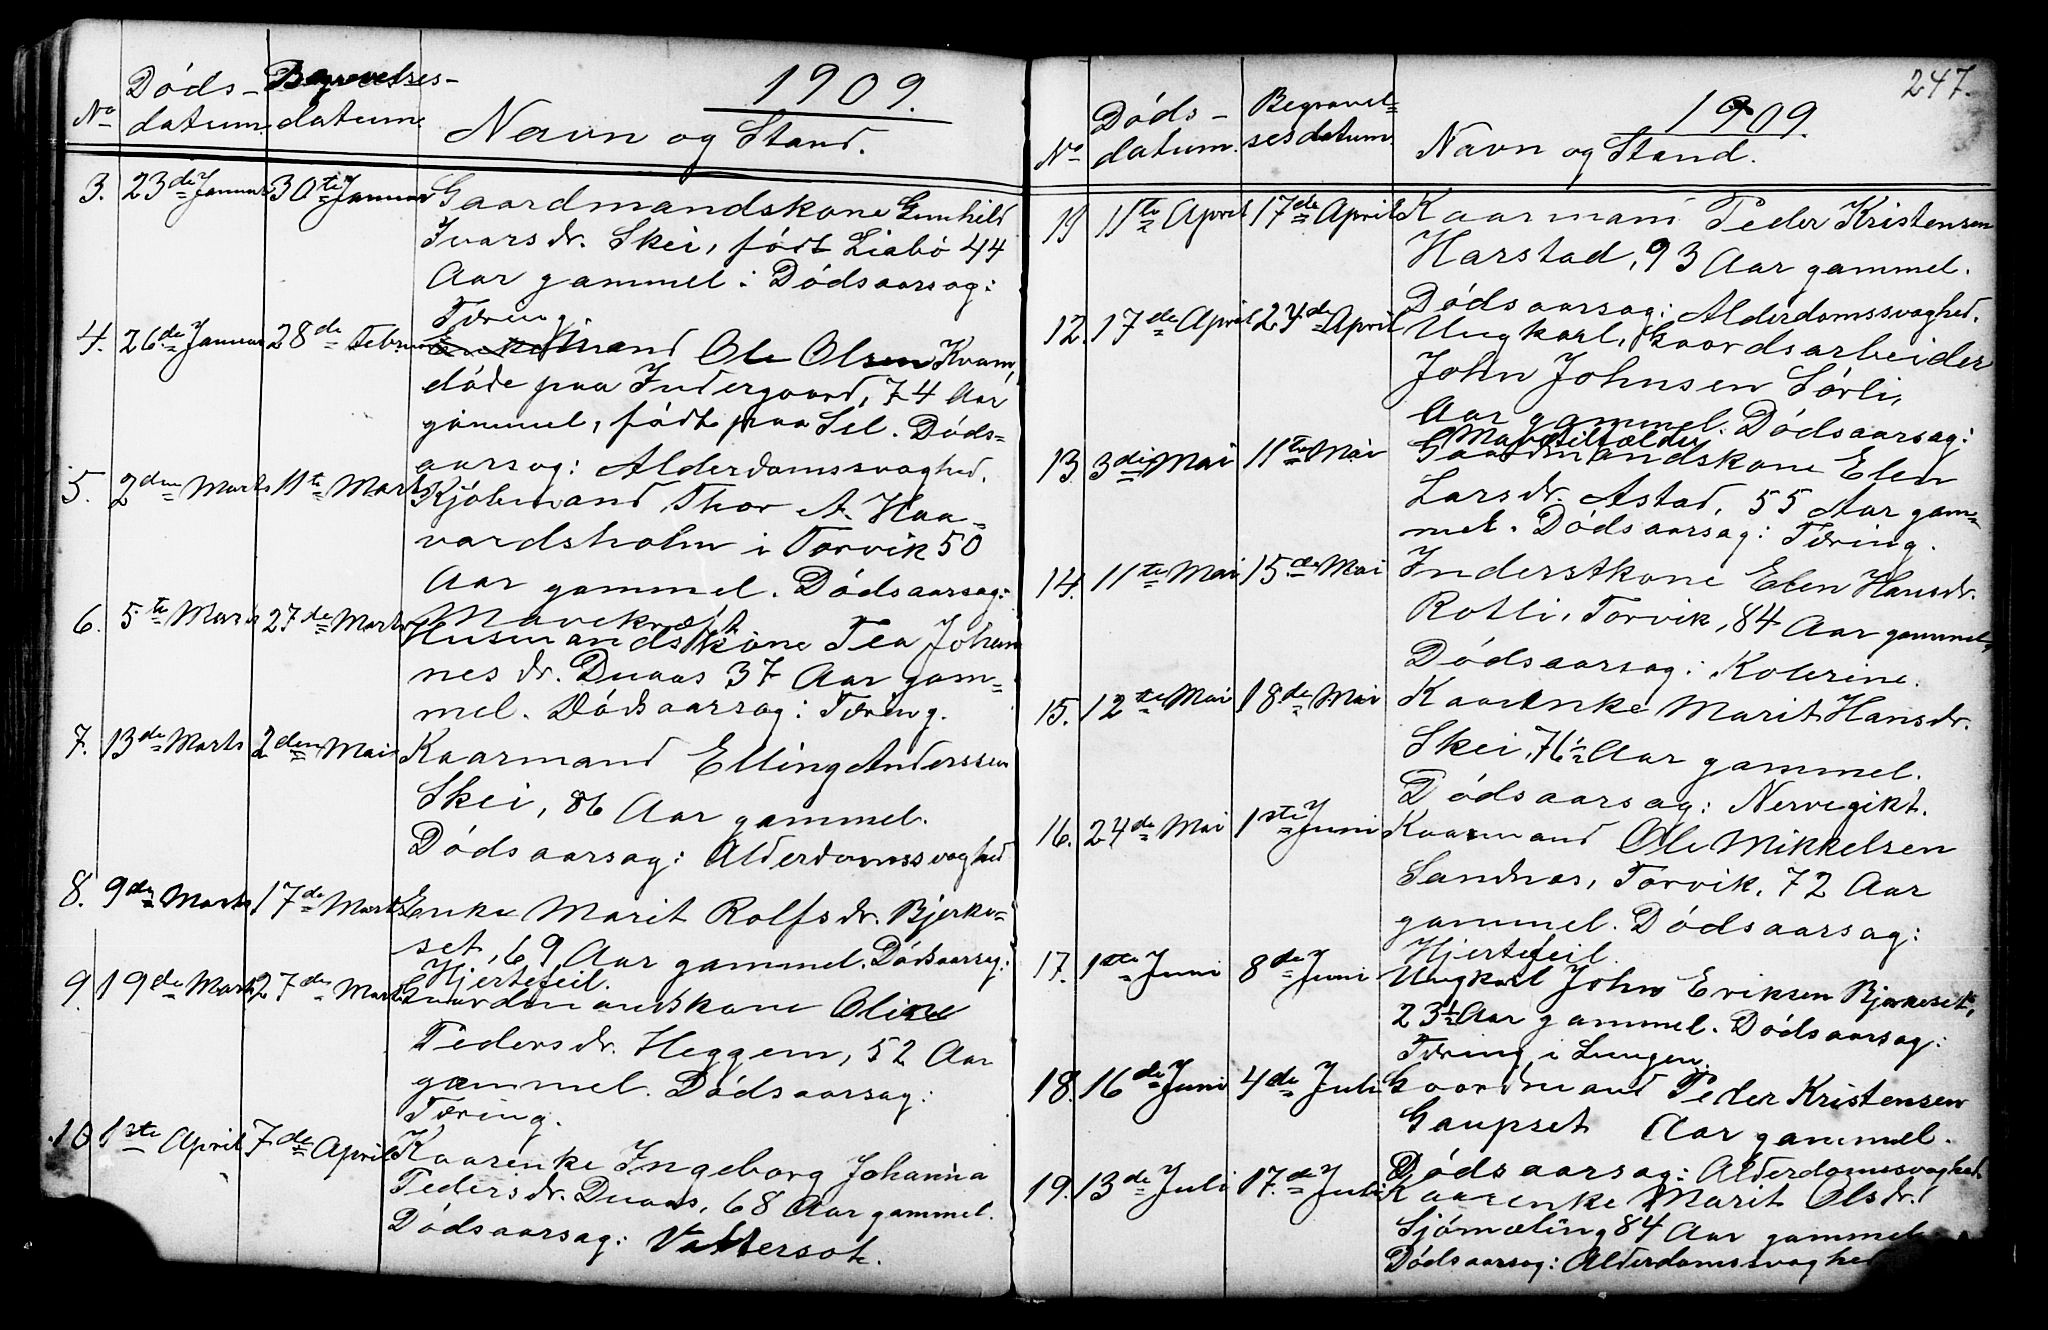 1909.
No Døds- datum. Begravelses- datum. Navn og Stand.
3. 23de Januar 30te Januar Gaardmandskone Gunhild
Ivarsdr. Skei, født Liabø 44
Aar gammel: Dødsaarsag:
Tæring.
4. 26de Januar 28de Februar Enkemand Ole Olsen Kvam,
døde paa Indergaard, 74 Aar
gammel, født paa Sel. Døds-
aarsag: Alderdomssvaghed.
5. 2den Marts 11te Marts Kjøbmand Thor A. Haa-
vardsholm i Torvik 50
Aar gammel. Dødsaarsag:
Mavekræft
6. 5te Marts 27de Marts Husmandskone Tea Johan
nesdr. Duaas 37 Aar gam-
mel. Dødsaarsag: Tæring.
7. 13de Marts 2den Mai Kaarmand Elling Anderssen
Skei, 86 Aar gammel.
Dødsaarsag: Alderdomssvaghed
8. 9de Marts 17de Marts Enke Marit Rolfsdr. Bjerke-
set, 69 Aar gammel. Dødsaarsag:
Hjertefeil.
9. 19de Marts 27de Marts Gaardmandskone Oline
Pedersdr. Heggem, 52 Aar
gammel. Dødsaarsag:
Tæring.
10. 1ste April 7de April Kaarenke Ingeborg Johanna
Pedersdr. Duaas, 68 Aar gammel.
Dødsaarsag: Vattersot.
247.
1909.
No Døds- datum. Begravel- sesdatum. Navn og Stand.
11 11te April 17de April Kaarmand Peder Kristensen
Harstad, 93 Aar gammel.
Dødsaarsag: Alderdomssvaghed.
12. 17de April 24de April Ungkarl, Gaardsarbeider
John Johnsen Sørli,
Aar gammel. Dødsaarsag:
Mavetilfælde
13. 3die Mai 11te Mai Gaardmandskone Elen
Larsdr. Astad, 55 Aar gam-
mel. Dødsaarsag: Tæring.
14. 11te Mai 15de Mai Inderstkone Elen Hansdr.
Rotli, Torvik, 84 Aar gammel,
Dødsaarsag: Kolerine.
15. 12te Mai 18de Mai Kaarenke Marit Hansdr.
Skei, 76½ Aar gammel.
Dødsaarsag: Nervegikt.
16. 24de Mai 1ste Juni Kaarmand Ole Mikkelsen
Sandnes, Torvik, 72 Aar
gammel. Dødsaarsag:
Hjertefeil.
17. 1ste Juni 8de Juni Ungkarl John Eriksen Bjerkeset,
23½ Aar gammel. Dødsaarsag:
Tæring i Lungen.
18. 16de Juni 4de Juli Gaardmand Peder Kristensen
Gaupset Aar gammel.
Dødsaarsag: Alderdomssvaghed.
19. 13de Juli 17de Juli Kaarenke Marit Olsdr.
Sjømæling 84 Aar gammel
Dødsaarsag: Alderdomssvaghed